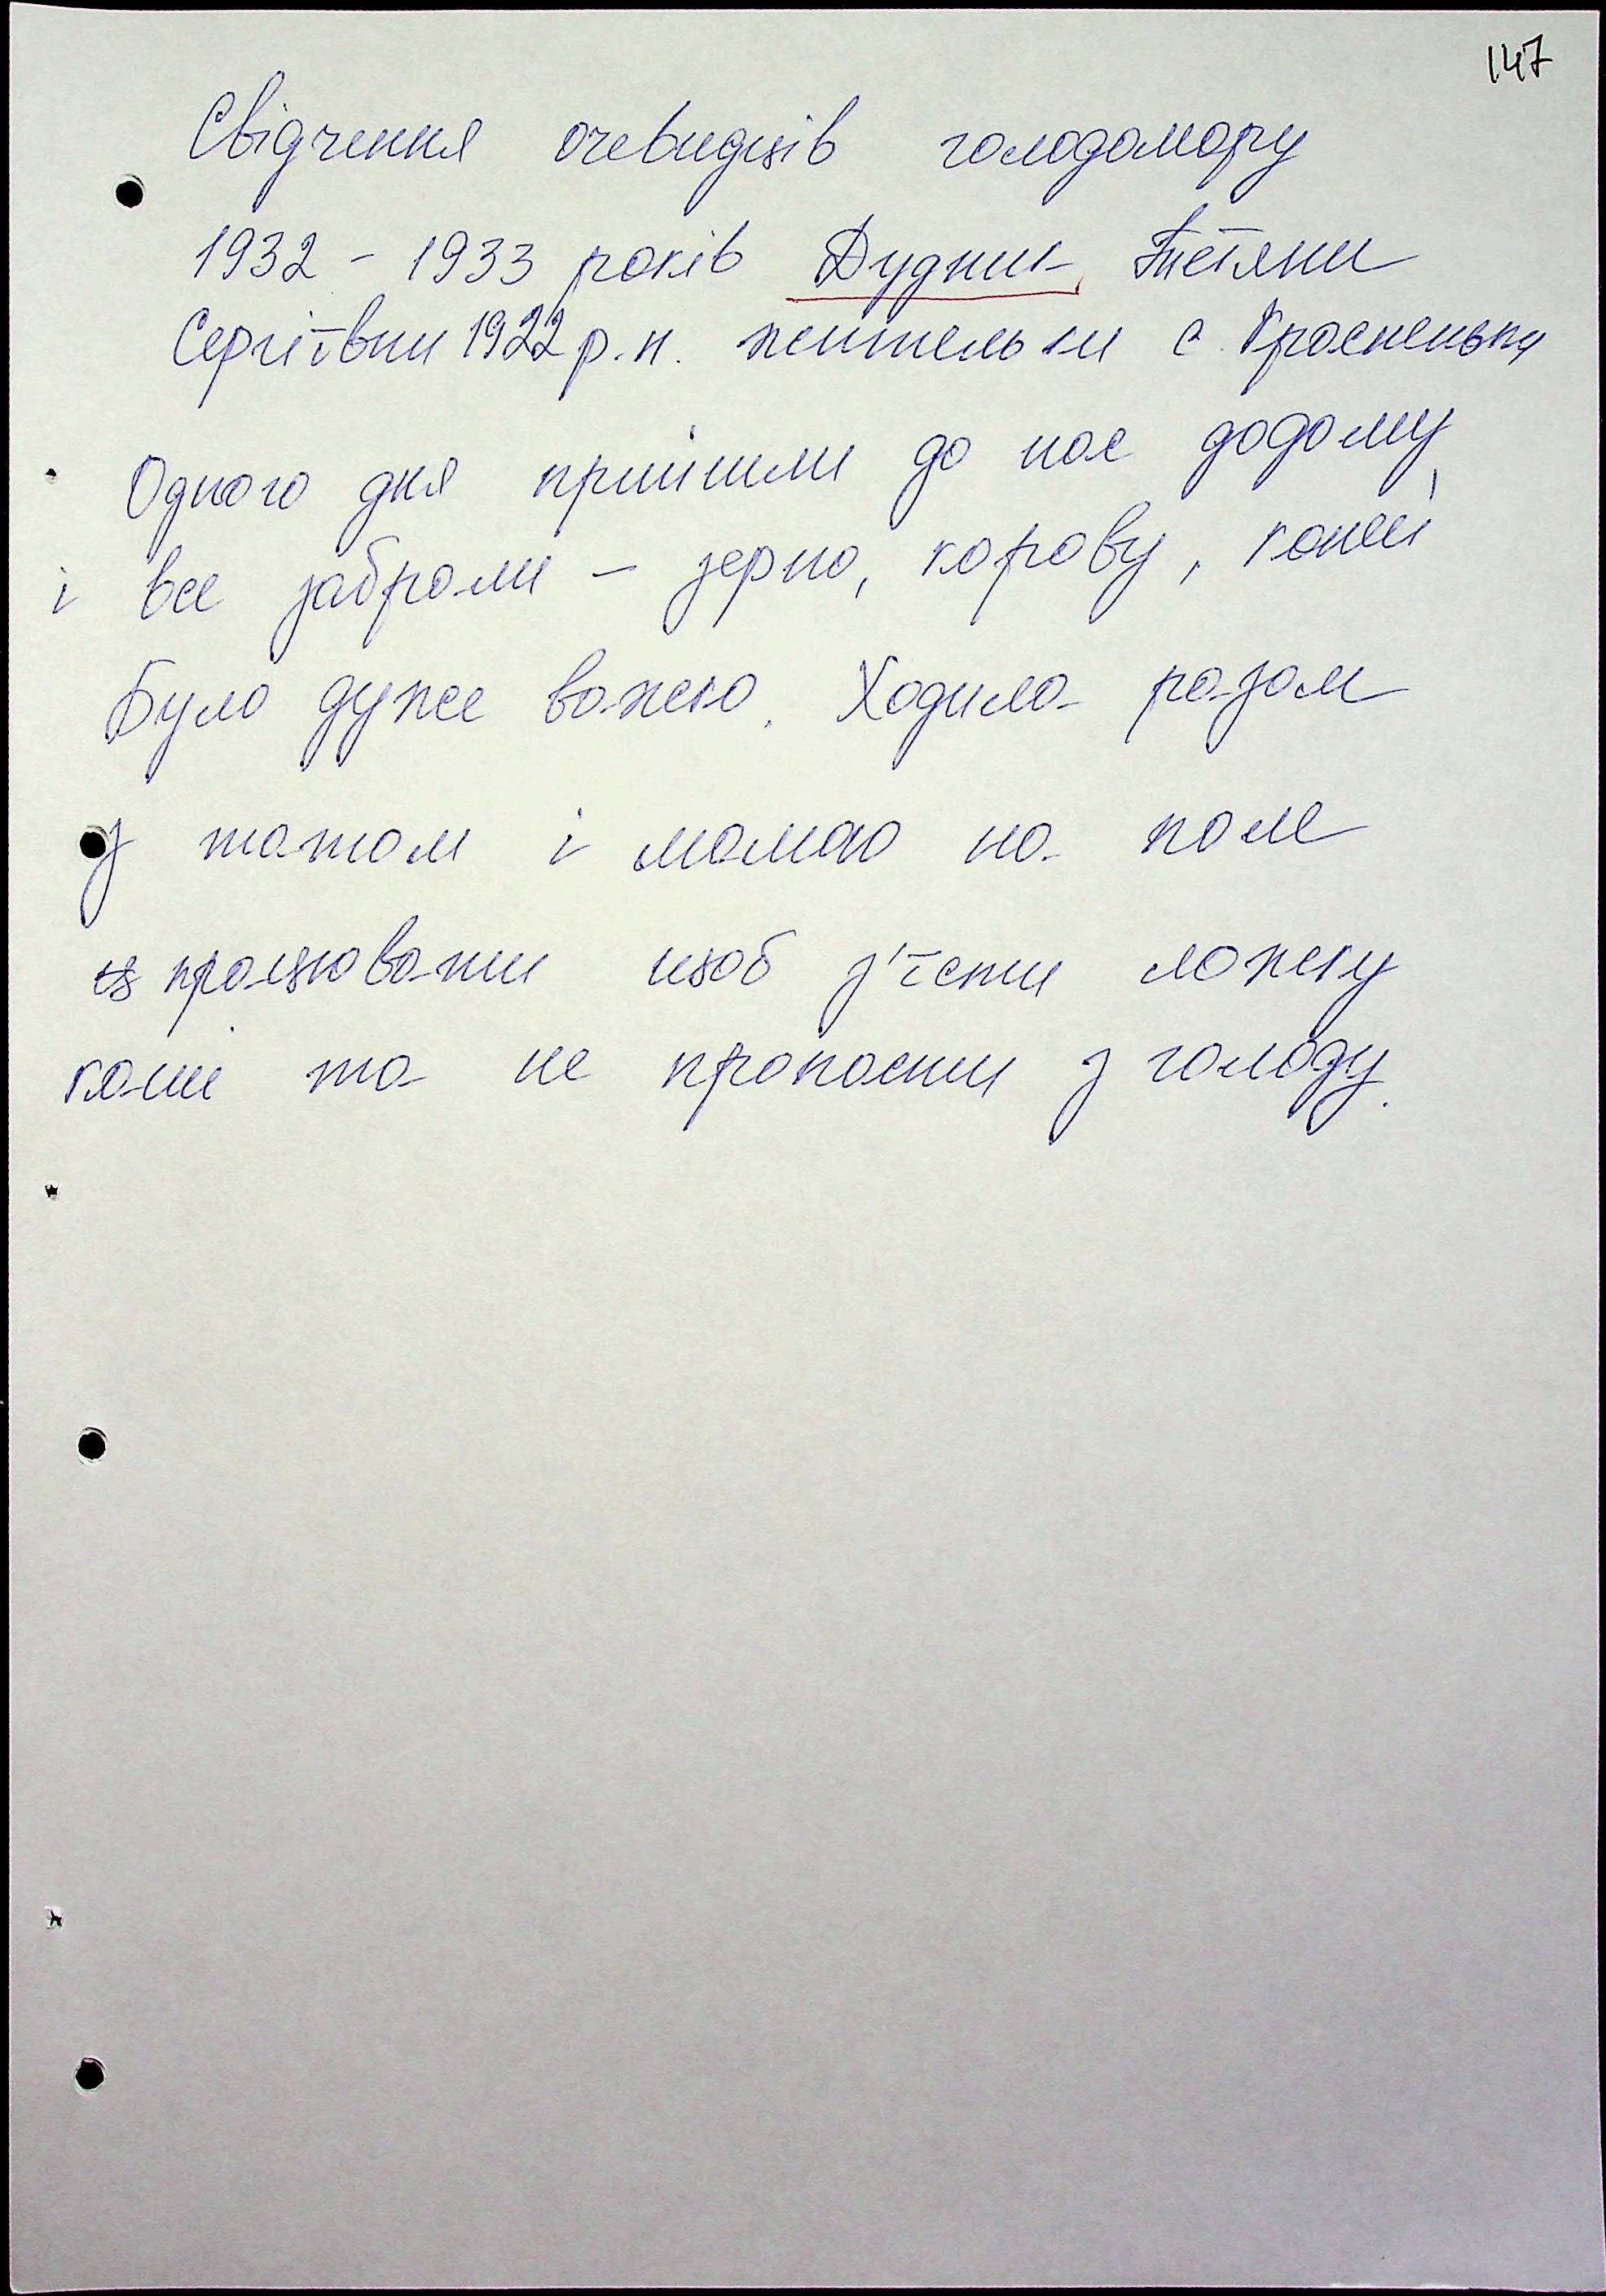 147
Свідчення очевидців голодомору
1932 - 1933 років Дудник Тетяни
Сергіївни 1922 р.н. жительки с. Красненьке
Одного дня прийшли до нас додому
і все забрали - зерно, корову, коней
Було дуже важко. Ходила разом
з татом і мамою на поле
працювати щоб з'їсти ложку
каші та не пропасти з голоду.